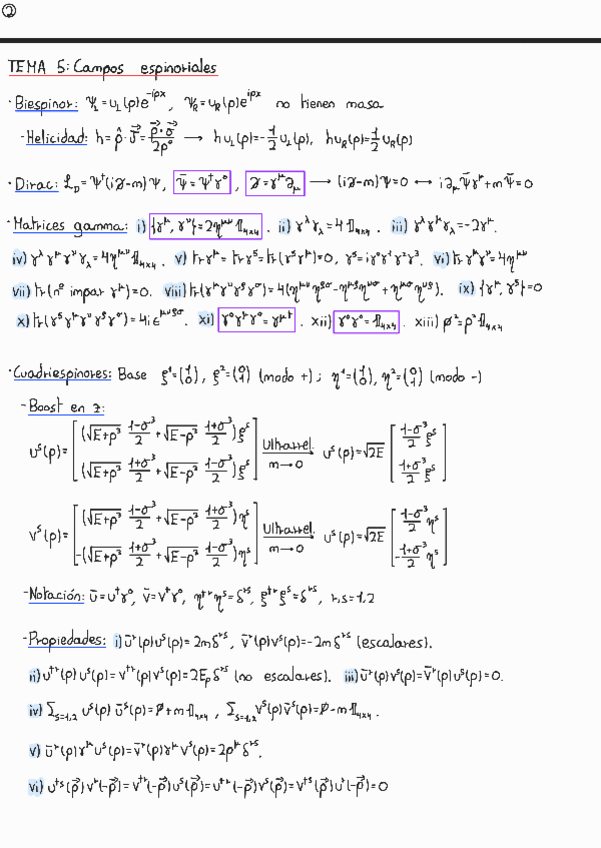 ②
TEMA 5: Campos espinoriales
· Biespinor: Ψ_L = u_L(p)e^{-ipx}, Ψ_R = u_R(p)e^{ipx} no tienen masa
- Helicidad: h = p̂·J⃗ = (p⃗·σ⃗)/(2p⁰) → h u_L(p) = -1/2 u_L(p), h u_R(p) = 1/2 u_R(p)
· Dirac: ℒ_D = Ψ†(i∂̸-m)Ψ, Ψ̄ = Ψ†γ⁰, ∂̸ = γ^μ∂_μ → (i∂̸-m)Ψ = 0 ↔ i∂_μΨ̄γ^μ + mΨ̄ = 0
· Matrices gamma: i) {γ^μ, γ^ν} = 2η^{μν} 𝟙_{4x4}. ii) γ^λγ_λ = 4 𝟙_{4x4}. iii) γ^λγ^μγ_λ = -2γ^μ.
iv) γ^λγ^μγ^νγ_λ = 4η^{μν}𝟙_{4x4}. v) tr γ^μ = tr γ⁵ = tr(γ⁵γ^μ) = 0, γ⁵ = iγ⁰γ¹γ²γ³. vi) tr γ^μγ^ν = 4η^{μν}
vii) tr(nº impar γ^μ) = 0. viii) tr(γ^μγ^νγ^ργ^σ) = 4(η^{μν}η^{ρσ} - η^{μρ}η^{νσ} + η^{μσ}η^{νρ}). ix) {γ^μ, γ⁵} = 0
x) tr(γ⁵γ^μγ^νγ^ργ^σ) = 4iε^{μνρσ}. xi) γ⁰γ^μγ⁰ = γ^{μ†}. xii) γ⁰γ⁰ = 𝟙_{4x4}. xiii) p̸² = p² 𝟙_{4x4}
· Cuadriespinores: Base ξ¹ = (1 0), ξ² = (0 1) (modo +); η¹ = (1 0), η² = (0 1) (modo -)
- Boost en z:
u^s(p) = [(√(E+p³) (1-σ³)/2 + √(E-p³) (1+σ³)/2)ξ^s
(√(E+p³) (1+σ³)/2 + √(E-p³) (1-σ³)/2)ξ^s] Ultrarrel. m→0 u^s(p) = √(2E) [(1-σ³)/2 ξ^s
(1+σ³)/2 ξ^s]
v^s(p) = [(√(E+p³) (1-σ³)/2 + √(E-p³) (1+σ³)/2)η^s
-(√(E+p³) (1+σ³)/2 + √(E-p³) (1-σ³)/2)η^s] Ultrarrel. m→0 u^s(p) = √(2E) [(1-σ³)/2 η^s
-(1+σ³)/2 η^s]
- Notación: ū = u†γ⁰, v̄ = v†γ⁰, η^{†r}η^s = δ^{rs}, ξ^{†r}ξ^s = δ^{rs}, r,s = 1,2
- Propiedades: i) ū^r(p)u^s(p) = 2mδ^{rs}, v̄^r(p)v^s(p) = -2mδ^{rs} (escalares).
ii) u^{†r}(p)u^s(p) = v^{†r}(p)v^s(p) = 2E_pδ^{rs} (no escalares). iii) ū^r(p)v^s(p) = v̄^r(p)u^s(p) = 0.
iv) Σ_{s=1,2} u^s(p)ū^s(p) = p̸ + m𝟙_{4x4}, Σ_{s=1,2} v^s(p)v̄^s(p) = p̸ - m𝟙_{4x4}.
v) ū^r(p)γ^μu^s(p) = v̄^r(p)γ^μv^s(p) = 2p^μδ^{rs}.
vi) u^{†s}(p⃗)v^r(-p⃗) = v^{†r}(-p⃗)u^s(p⃗) = u^{†r}(-p⃗)v^s(p⃗) = v^{†s}(p⃗)u^r(-p⃗) = 0